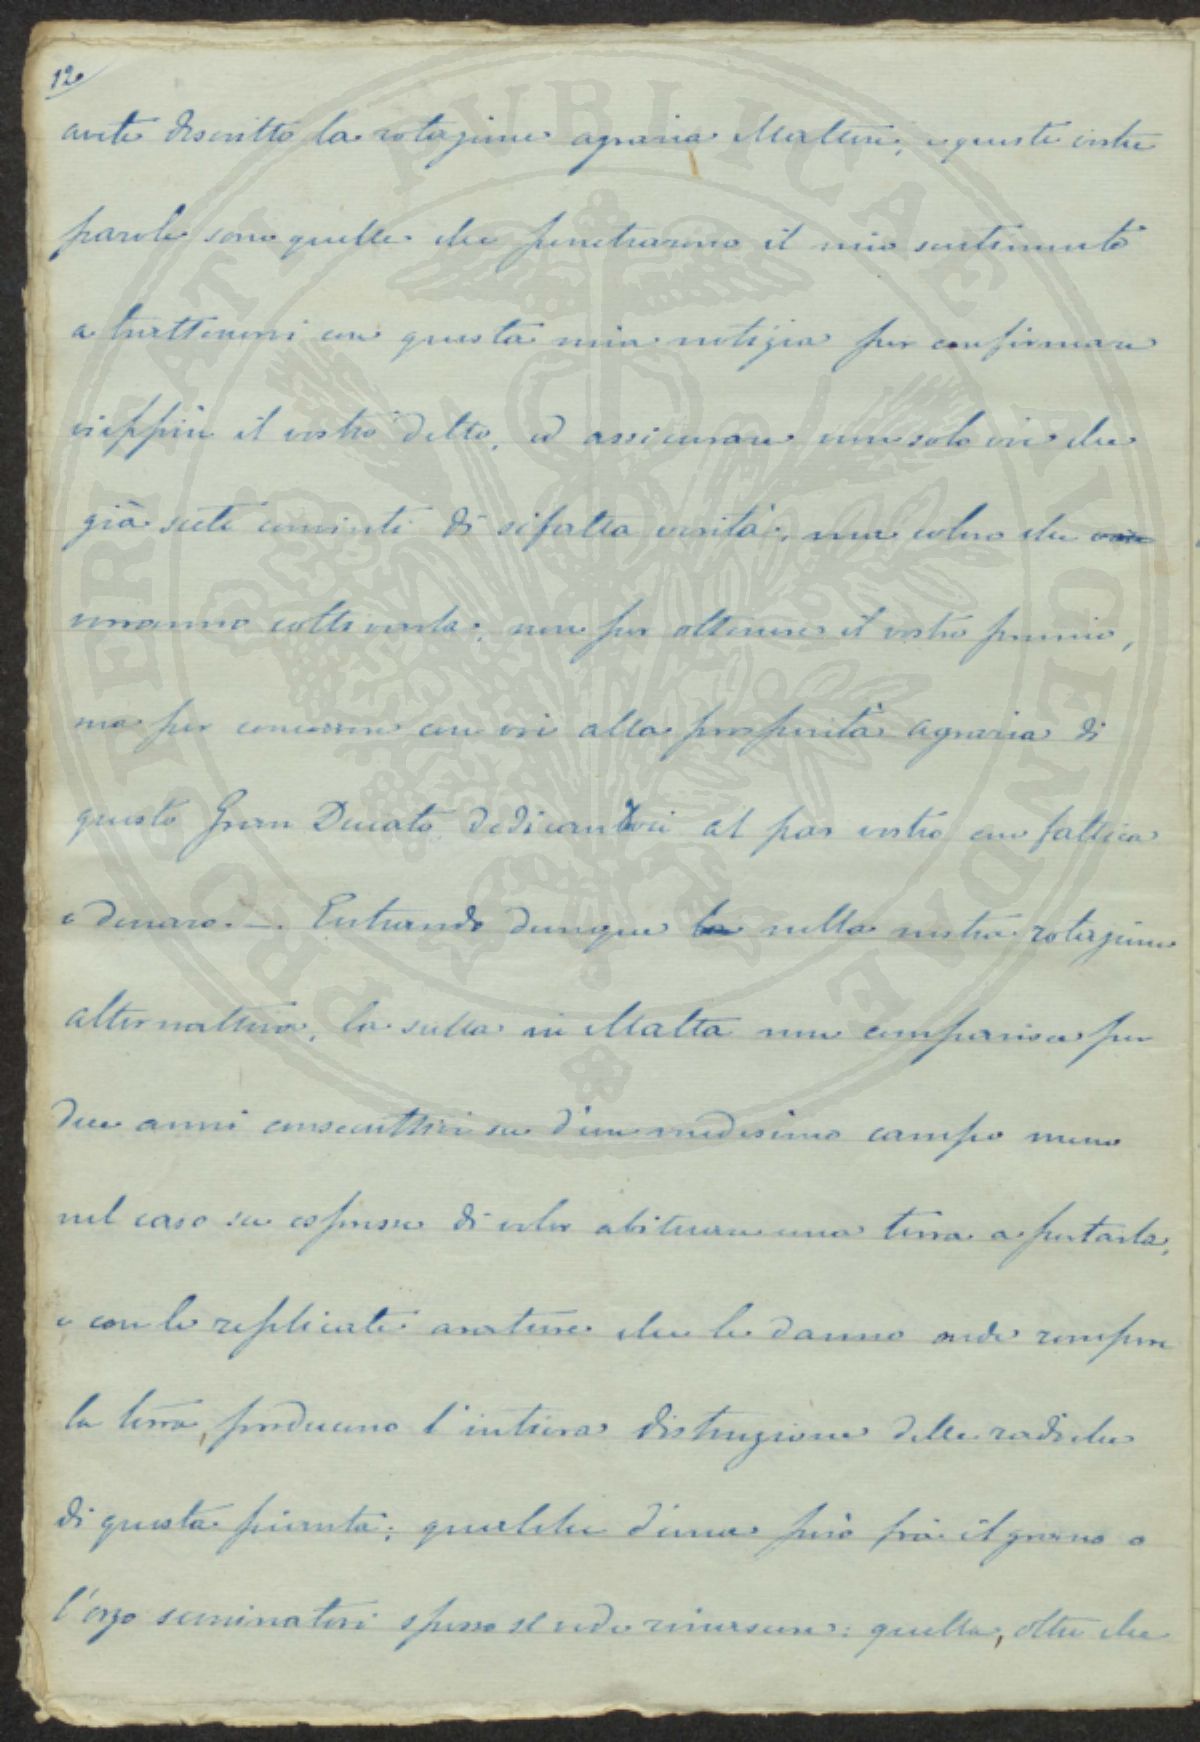 12
avete descritto la rotazione agraria Maltese; e queste vostre
parole sono quelle che penetrarono il mio sentimento
a trattenervi con questa mia notizia per confirmare
vieppiù il vostro detto, ed assicurare non solo voi che
già siete convinti di sifatta verità; ma coloro che
vorranno coltivarla; non per ottenere il vostro premio,
ma per concorrere con voi alla prosperità agraria di
questo Gran Ducato dedicandovi al par vostro con fattica
e denaro. —. Entrando dunque la nella nostra rotazione
alternativa, la sulla in Malta non comparisce per
due anni consecuttivi su d'un medesimo campo meno
nel caso su espresso di voler abituare una terra a portarla,
e con le replicate arature che le danno onde rompere
la terra, producono l'intiera distruzione delle radiche
di questa pianta; qualche d'una però frà il grano o
l'orzo seminatovi spesso si vede rinascere: quella, oltre che
PROSPERITATI PVBLICAE AVGENDAE